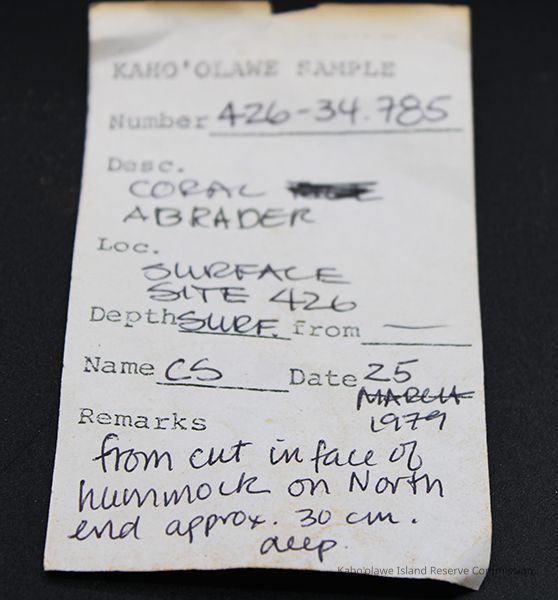 KAHO'OLAWE SAMPLE
Number 426-34.785
Desc.
CORAL
ABRADER
Loc.
SURFACE
SITE 426
Depth SURF. from —
Name CS Date 25
MARCH
1979
Remarks
from cut in face of
hummock on North
end approx. 30 cm.
deep.
Kaho'olawe Island Reserve Commission